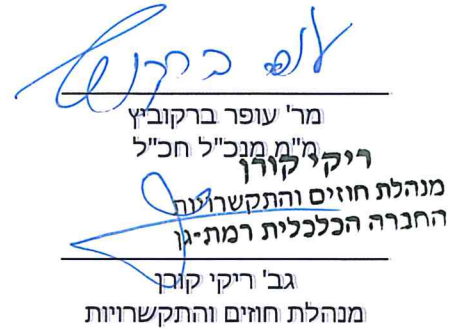 מר' עופר ברקוביץ
מ"מ מנכ"ל חכ"ל
ריקי קורן
מנהלת חוזים והתקשרויות
החברה הכלכלית רמת-גן
גב' ריקי קורן
מנהלת חוזים והתקשרויות